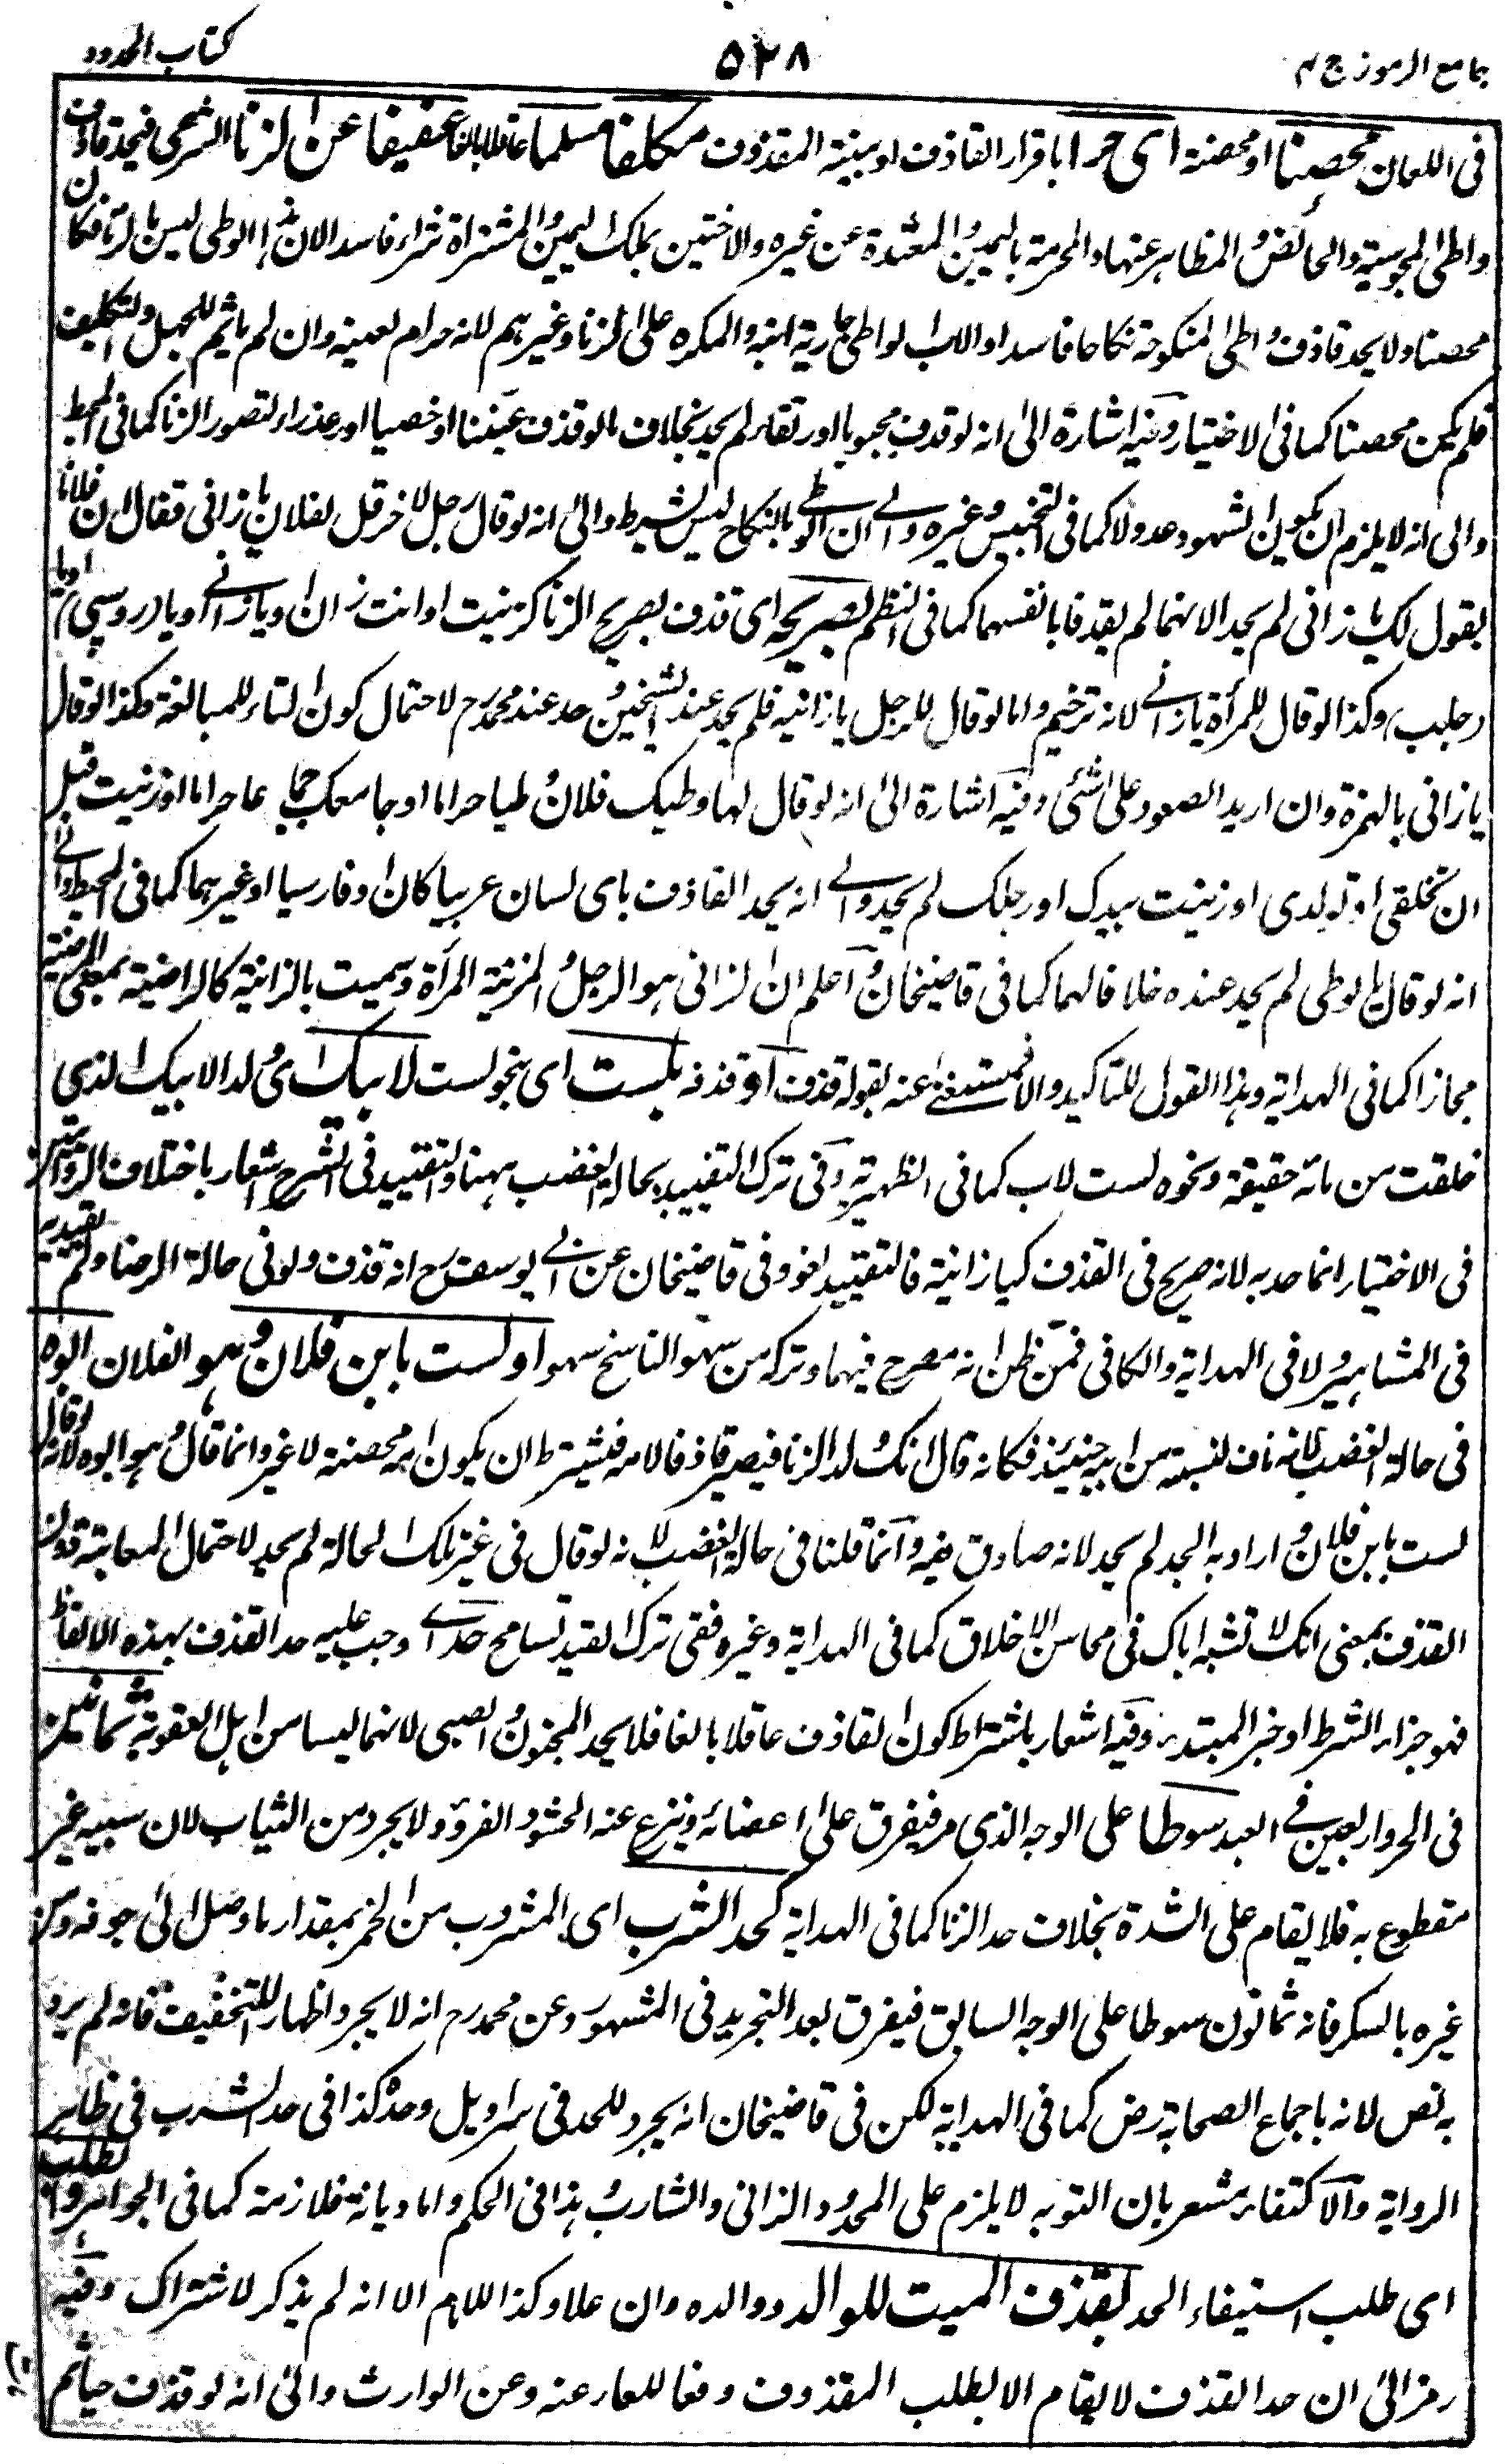 جامع الرموز ج ٢ ٥٢٨ كتاب الحدود
فى اللعان محصنا او محصنة اى حرا باقرار القاذف او ببينة المقذوف مكلفا مسلما عاقلا بالغا عفيفا عن الزنا الشرعى فيحد قاذف
واطئ المجوسية والحائض والمظاهر عنها والمحرمة باليمين والمعتدة عن غيره والاختين بملك اليمين والمشتراة شراء فاسدا لان هذا الوطى ليس بالزنا فكان
محصنا ولا يحد قاذف واطئ المنكوحة نكاحا فاسدا والاب لو اطى جارية ابنه والمكره على الزنا وغيرهم لانه حرام لعينه وان لم ياثم للجهل والتكليف
فلم يكن محصنا كما فى الاختيار وفيه اشارة الى انه لو قذف مجبوبا او رتقاء لم يحد بخلاف ما لو قذف عنينا او خصيا او عذراء لتصور الزنا كما فى المحيط
والى انه لا يلزم ان يكون الشهود عدولا كما فى التجنيس وغيره والى ان الوطى بالنكاح ليس بشرط والى انه لو قال رجل لاخر قل لفلان يا زانى فقال ان فلانا
يقول لك يا زانى لم يحد الا انهما لم يقذفا بانفسهما كما فى النظم بصريحه اى قذف بصريح الزنا كزنيت او انت زان او يا زانى او يا (روسپى) او يا
(جلب) وكذا لو قال للمرأة يا زانى لانه ترخيم واما لو قال للرجل يا زانية فلم يحد عند الشيخين وحد عند محمد رح لاحتمال كون التاء للمبالغة وكذا لو قال
يا زانى بالهمزة وان اريد الصعود على شئ وفيه اشارة الى انه لو قال لها وطيك فلان وطيا حراما او جامعك جماعا حراما او زنيت قبل
ان تخلقى او تولدى او زنيت بيدك او رجلك لم يحد والى انه يحد القاذف باى لسان عربيا كان او فارسيا او غيرهما كما فى المحيط والى
انه لو قال يا لوطى لم يحد عنده خلافا لهما كما فى قاضيخان واعلم ان الزانى هو الرجل والمزنية المرأة وسميت بالزانية كالراضية بمعنى المرضية
مجازا كما فى الهداية وهذا القول للتاكيد والا فمستغنى عنه بقوله قذف او قذفه بلست اى بنحو لست لابيك اى ولد الابيك الذى
خلقت من مائه حقيقة ونحوه لست لاب كما فى الظهيرية وفى ترك التقييد بحالة الغضب ههنا والتقييد فى الشرح اشعار باختلاف الروايتين
فى الاختيار انما حد به لانه صريح فى القذف كيا زانية فالتقييد لغو وفى قاضيخان عن ابى يوسف رح انه قذف ولو فى حالة الرضا ولم يقيد به
فى المشاهير ولا فى الهداية والكافى فمن ظن انه مصرح فيها وتركه من سهو الناسخ سها او لست بابن فلان وهو الفلان ابوه
فى حالة الغضب لانه ناف لنسبته من ابيه حينئذ فكانه قال انك ولد الزنا فيصير قاذفا لامه فيشترط ان يكون امه محصنة لا غير وانما قال وهو ابوه لانه لو قال
لست بابن فلان واراد به الجد لم يحد لانه صادق فيه وانما قلنا فى حالة الغضب لانه لو قال فى غير تلك الحالة لم يحد لاحتمال المعاتبة
القذف بمعنى انك لا تشبه اباك فى محاسن الاخلاق كما فى الهداية وغيره ففى ترك القيد تسامح حد اى وجب عليه حد القذف بهذه الالفاظ
فهو جزاء الشرط او خبر المبتدء وفيه اشعار باشتراط كون القاذف عاقلا بالغا فلا يحد المجنون والصبى لانهما ليسا من اهل العقوبة ثمانين
فى الحر واربعين فى العبد سوطا على الوجه الذى مر فيفرق على اعضائه وينزع عنه الحشو والفرو ولا يجرد من الثياب لان سببه غير
مقطوع به فلا يقام على الشدة بخلاف حد الزنا كما فى الهداية كحد الشرب اى المشروب من الخمر بمقدار ما وصل الى جوفه ومن
غيره بالسكر فانه ثمانون سوطا على الوجه السابق فيفرق بعد التجريد فى المشهور وعن محمد رح انه لا يجرد اظهارا للتخفيف فانه لم يرد
به نص لانه باجماع الصحابة رض كما فى الهداية لكن فى قاضيخان انه يجرد للحد فى سراويل وحده كذا فى حد الشرب فى ظاهر
الرواية والاكتفاء مشعر بان التوبه لا يلزم على المحدود الزانى والشارب وهذا فى الحكم واما ديانة فلازمة كما فى الجواهر والطلب
اى طلب استيفاء الحد بقذف الميت للوالد ووالده وان علا وكذا للام الا انه لم يذكر لاشتراك وفيه
رمز الى ان حد القذف لا يقام الا بطلب المقذوف دفعا للعار عنه وعن الوارث والى انه لو قذف حيا ثم